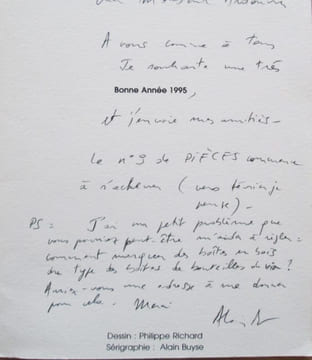 A vous comme à tous
Je souhaite une très
Bonne Année 1995,
et j'envoie mes amitiés -
Le n° 9 de PIÈCES commence
à s'achever (vers février je
pense) -
PS : J'ai un petit problème que
vous pourriez peut-être m'aider à régler :
comment marquer des boîtes en bois
du type des boîtes de bouteilles de vin ?
Auriez-vous une adresse à me donner
pour cela. Merci
Dessin : Philippe Richard
Sérigraphie : Alain Buyse